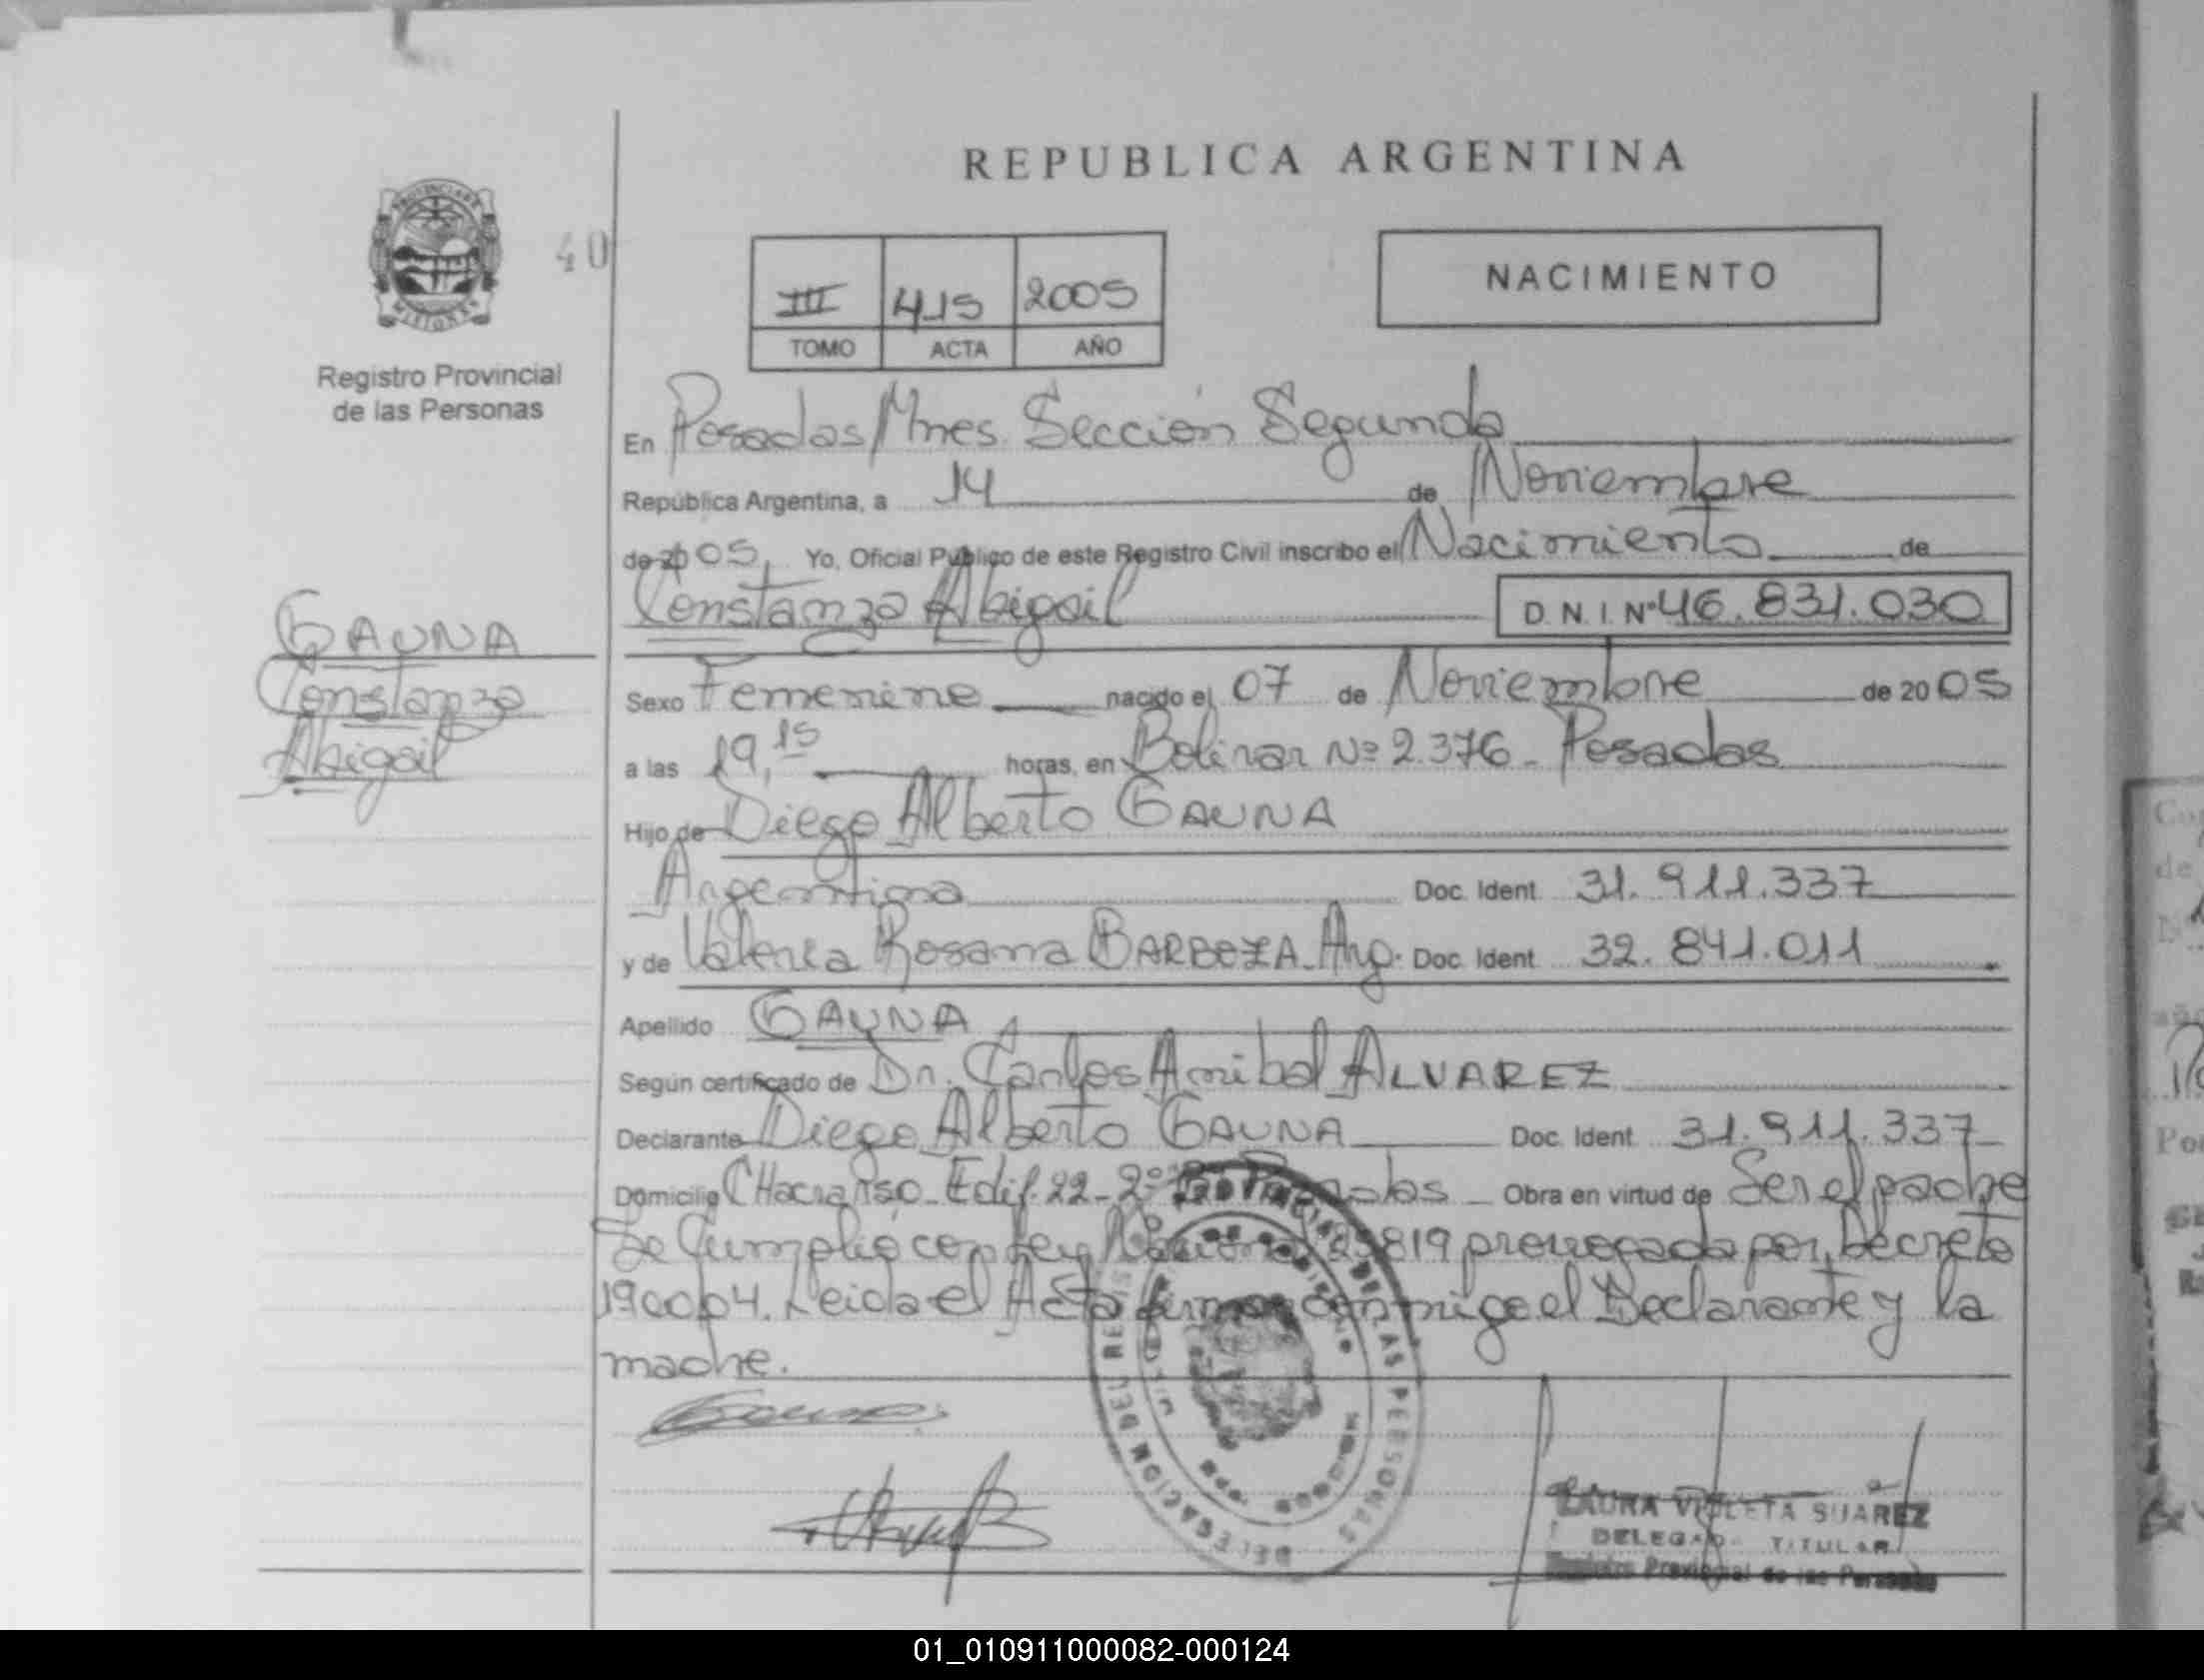 REPUBLICA ARGENTINA
PROVINCIA DE
MISIONES
40
Registro Provincial
de las Personas
III 415 2005
TOMO ACTA AÑO
NACIMIENTO
En Posadas Mnes. Sección Segunda
República Argentina, a 14 de Noviembre
de 2005, Yo, Oficial Público de este Registro Civil inscribo el Nacimiento de
Constanza Abigail D.N.I. Nº 46.831.030
GAUNA
Constanza
Abigail
Sexo Femenino nacido el 07 de Noviembre de 2005
a las 19,15 horas, en Bolivar Nº 2.376 - Posadas
Hijo de Diego Alberto GAUNA
Argentina Doc. Ident. 31.911.337
y de Valeria Rosana BARBOZA - Arg. Doc. Ident. 32.841.011
Apellido GAUNA
Según certificado de Dr. Carlos Anibal ALVAREZ
Declarante Diego Alberto GAUNA Doc. Ident. 31.911.337
Domicilio Edif. 22 - 2º Obra en virtud de Ser el padre
Se Cumplió con Ley Nacional 25819 prorrogada por Decreto
1900/04. Leida el Acta firman conmigo el Declarante y la
madre.
DELEGACION DEL REGISTRO PROVINCIAL DE LAS PERSONAS
LAURA VIOLETA SUAREZ
DELEGADO TITULAR
Registro Provincial de las Personas
01_010911000082-000124